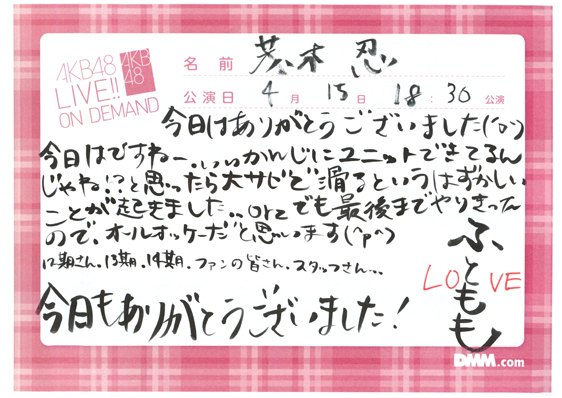 AKB48
LIVE!!
ON DEMAND
AKB
48
名前 茂木 忍
公演日 4月15日 18:30 公演
今日はありがとうございました(^o^)
今日はですねー、いいかんじにユニットできてるん
じゃね!?と思ったら大サビで滑るというはずかしい
ことが起きました..orz でも最後までやりきったん
ので、オールオッケーだと思います(^p^)
12期さん、13期、14期、ファンの皆さん、スタッフさん...
今日もありがとうございました!
ふともも
LOVE
DMM.com